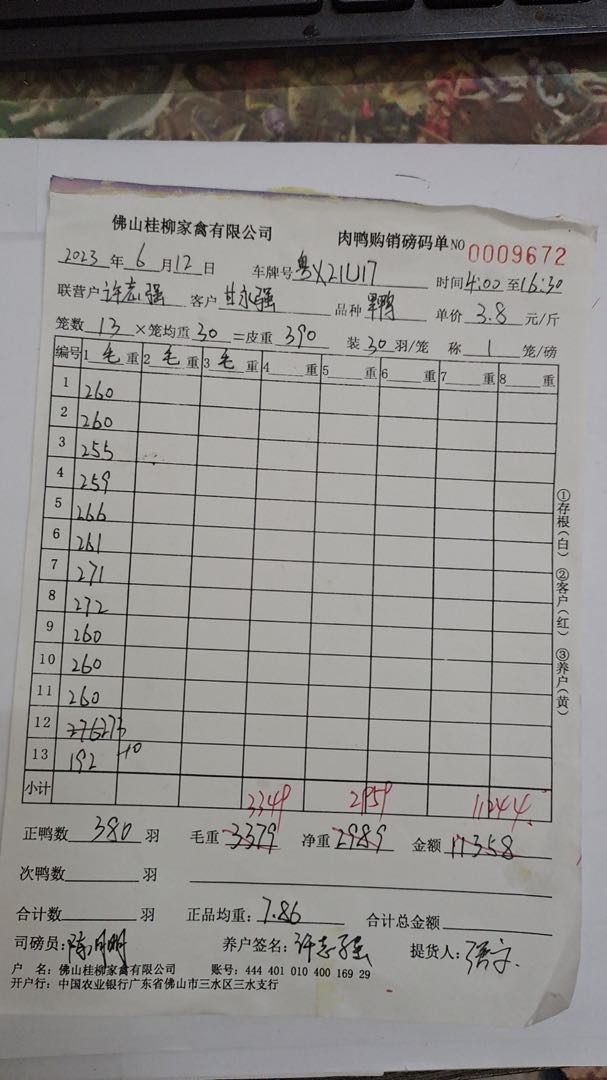 佛山桂柳家禽有限公司 肉鸭购销磅码单 NO 0009672
2023年 6月12日 车牌号 粤X21U17 时间4:00至16:30
联营户 许志强 客户 甘永强 品种 鸭 单价 3.8 元/斤
笼数 13 ×笼均重 30 =皮重 390 装 30 羽/笼 称 1 笼/磅
编号 1 毛 重 2 毛 重 3 毛 重 4 重 5 重 6 重 7 重 8 重
1 260
2 260
3 255
4 259
5 266
6 261
7 271
8 272
9 260
10 260
11 260
12 276273
13 192 -10
小计 3349 2959 11244
正鸭数 380 羽 毛重 3379 净重 2989 金额 11358
次鸭数 羽
合计数 羽 正品均重: 7.86 合计总金额
司磅员: 养户签名: 许志强 提货人:
户 名: 佛山桂柳家禽有限公司 账号: 444 401 010 400 169 29
开户行: 中国农业银行广东省佛山市三水区三水支行
①存根(白) ②客户(红) ③养户(黄)